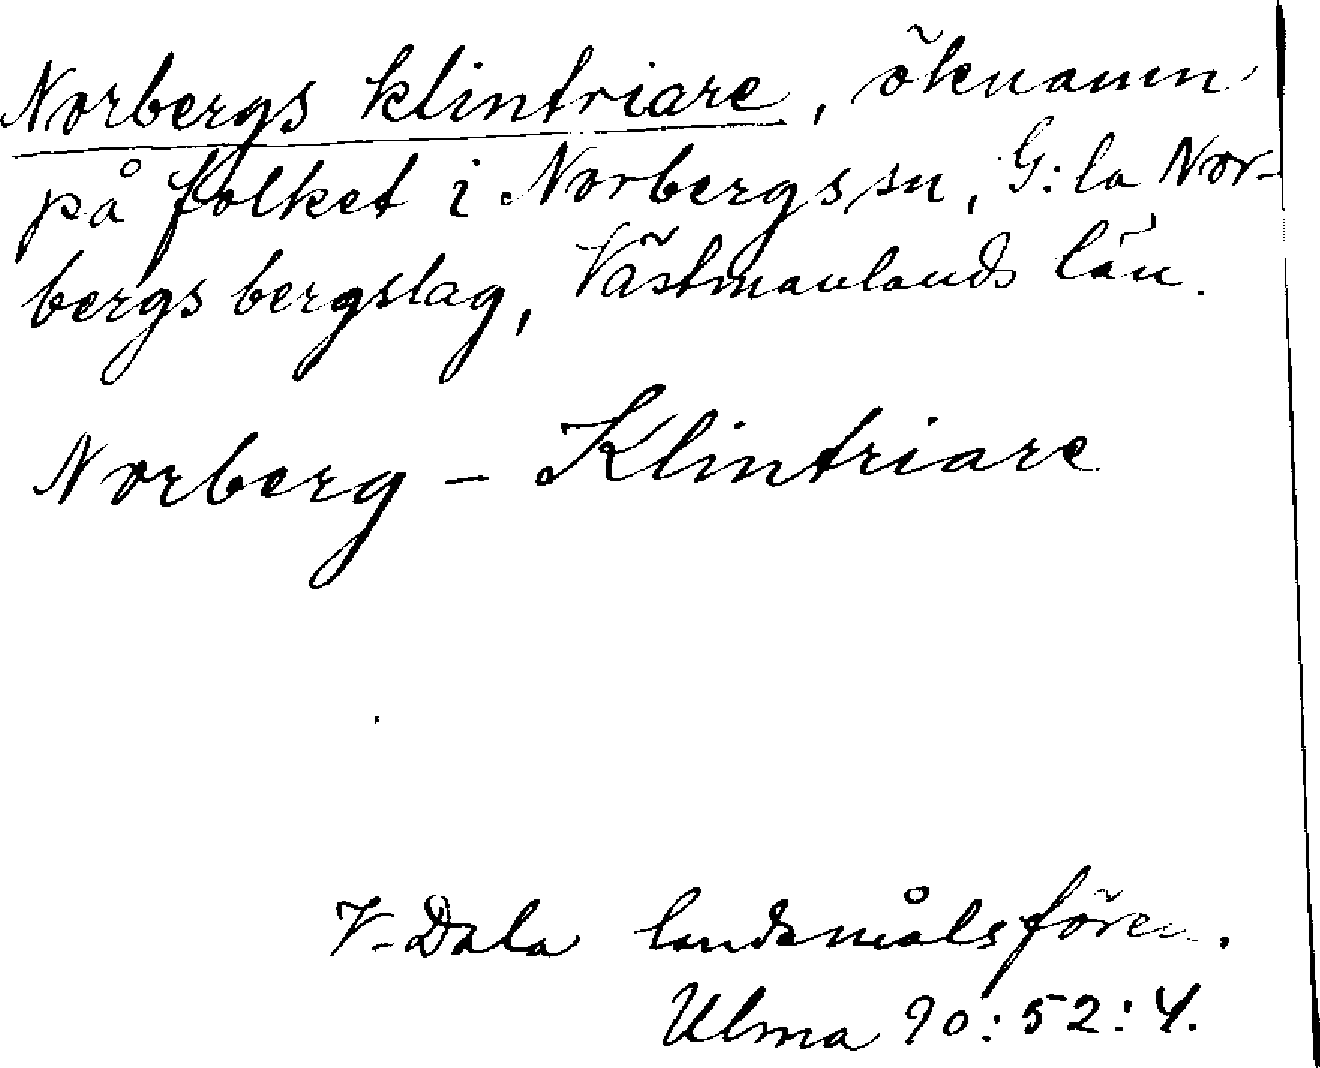 Norbergs klintriare, öknamn
på folket i Norbergs sn, G:la Nor-
bergs bergslag, Västmanlands län.
Norberg - Klintriare
V-Dala landsmålsfören.
Ulma 90:52:4.